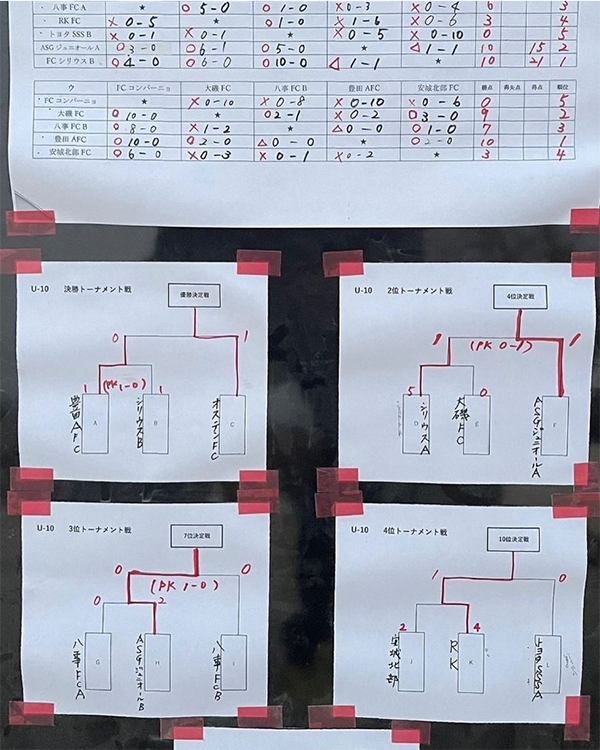 八事FC A ○ 5-0 ○ 1-0 ×0-3 ×0-4 6 3
RK FC ×0-5 ★ ○1-0 ×1-6 ×0-6 3 4
トヨタ SSS B ×0-1 ×0-1 ★ ×0-5 ×0-10 0 5
ASG ジュニオール A ○3-0 ○6-1 ○5-0 ★ △1-1 10 15 2
FC シリウス B ○4-0 ○6-0 ○10-0 △1-1 ★ 10 21 1
ウ FCコンパーニョ 大磯 FC 八事 FC B 豊田 AFC 安城北部 FC 勝点 得失点 得点 順位
FC コンパーニョ ★ ×0-10 ×0-8 ×0-10 ×0-6 0 5
大磯 FC ○10-0 ★ ○2-1 ×0-2 ○3-0 9 2
八事 FC B ○8-0 ×1-2 ★ △0-0 ○1-0 7 3
豊田 AFC ○10-0 ○2-0 △0-0 ★ ○2-0 10 1
安城北部 FC ○6-0 ×0-3 ×0-1 ×0-2 ★ 3 4
U-10 決勝トーナメント戦
優勝決定戦
0 1
1 (PK 1-0) 1
豊田AFC A シリウスB B オステンFC C
U-10 2位トーナメント戦
4位決定戦
1 (PK 0-1) 1
5 0
D シリウスA E 大磯FC F ASGジュニオールA
U-10 3位トーナメント戦
7位決定戦
0 (PK 1-0) 0
0 2
八事FCA G ASGジュニオールB H 八事FCB I
U-10 4位トーナメント戦
10位決定戦
1 0
2 4
安城北部 J RK K トヨタSSSA L